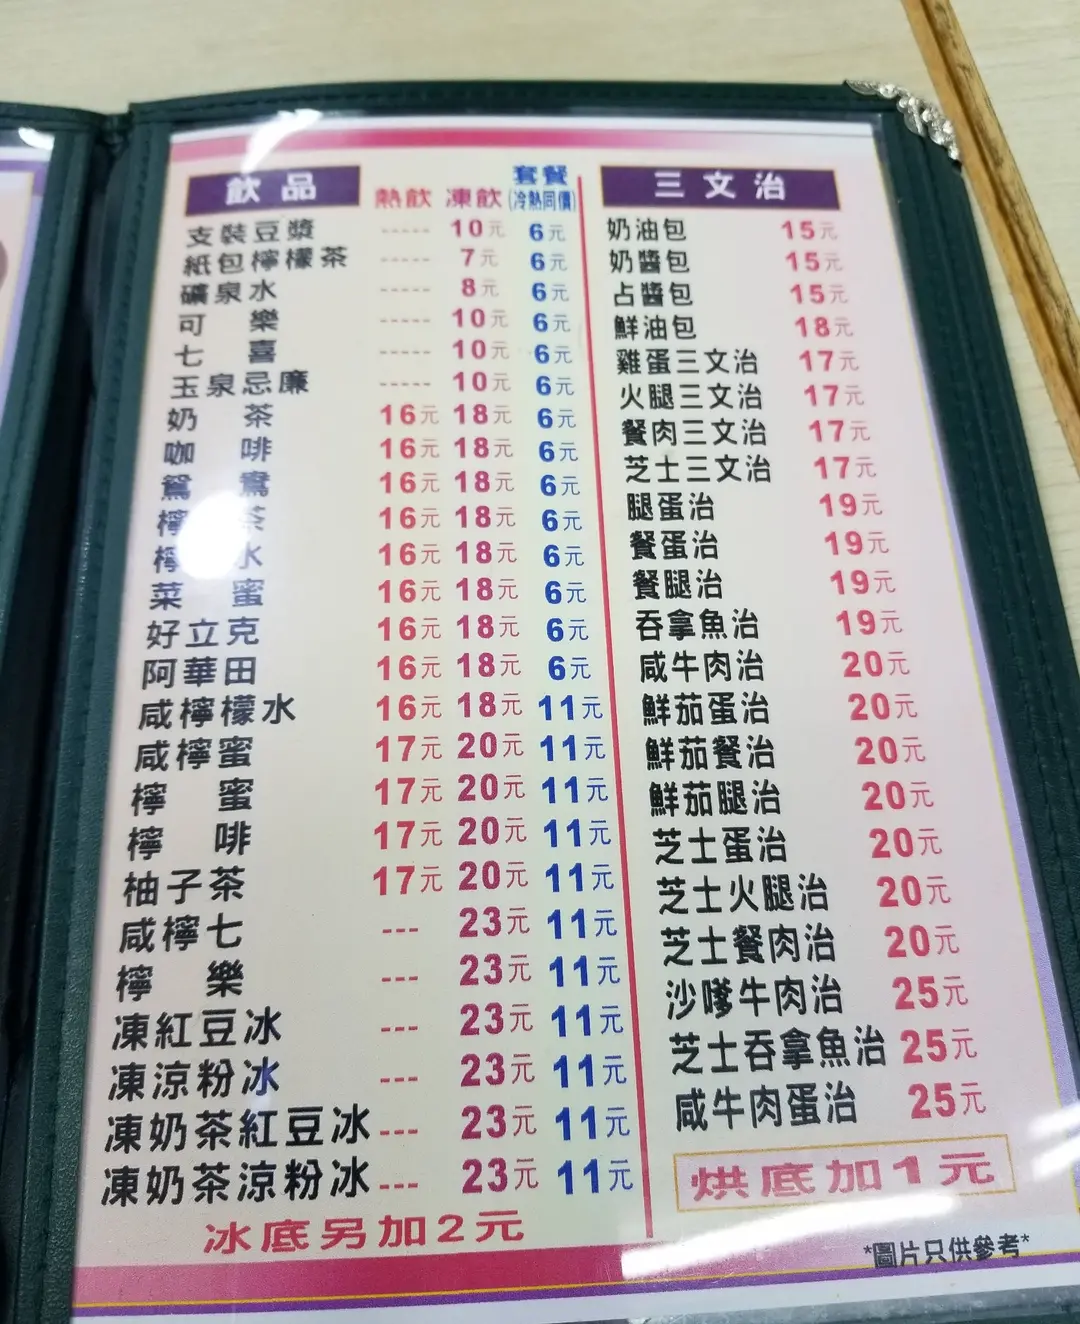 飲品 熱飲 凍飲 套餐(冷熱同價)
支裝豆漿 ----- 10元 6元
紙包檸檬茶 ----- 7元 6元
礦泉水 ----- 8元 6元
可樂 ----- 10元 6元
七喜 ----- 10元 6元
玉泉忌廉 ----- 10元 6元
奶茶 16元 18元 6元
咖啡 16元 18元 6元
鴛鴦 16元 18元 6元
檸茶 16元 18元 6元
檸水 16元 18元 6元
菜蜜 16元 18元 6元
好立克 16元 18元 6元
阿華田 16元 18元 6元
咸檸檬水 16元 18元 11元
咸檸蜜 17元 20元 11元
檸蜜 17元 20元 11元
檸啡 17元 20元 11元
柚子茶 17元 20元 11元
咸檸七 --- 23元 11元
檸樂 --- 23元 11元
凍紅豆冰 --- 23元 11元
凍涼粉冰 --- 23元 11元
凍奶茶紅豆冰 --- 23元 11元
凍奶茶涼粉冰 --- 23元 11元
冰底另加2元
三文治
奶油包 15元
奶醬包 15元
占醬包 15元
鮮油包 18元
雞蛋三文治 17元
火腿三文治 17元
餐肉三文治 17元
芝士三文治 17元
腿蛋治 19元
餐蛋治 19元
餐腿治 19元
吞拿魚治 19元
咸牛肉治 20元
鮮茄蛋治 20元
鮮茄餐治 20元
鮮茄腿治 20元
芝士蛋治 20元
芝士火腿治 20元
芝士餐肉治 20元
沙嗲牛肉治 25元
芝士吞拿魚治 25元
咸牛肉蛋治 25元
烘底加1元
*圖片只供參考*